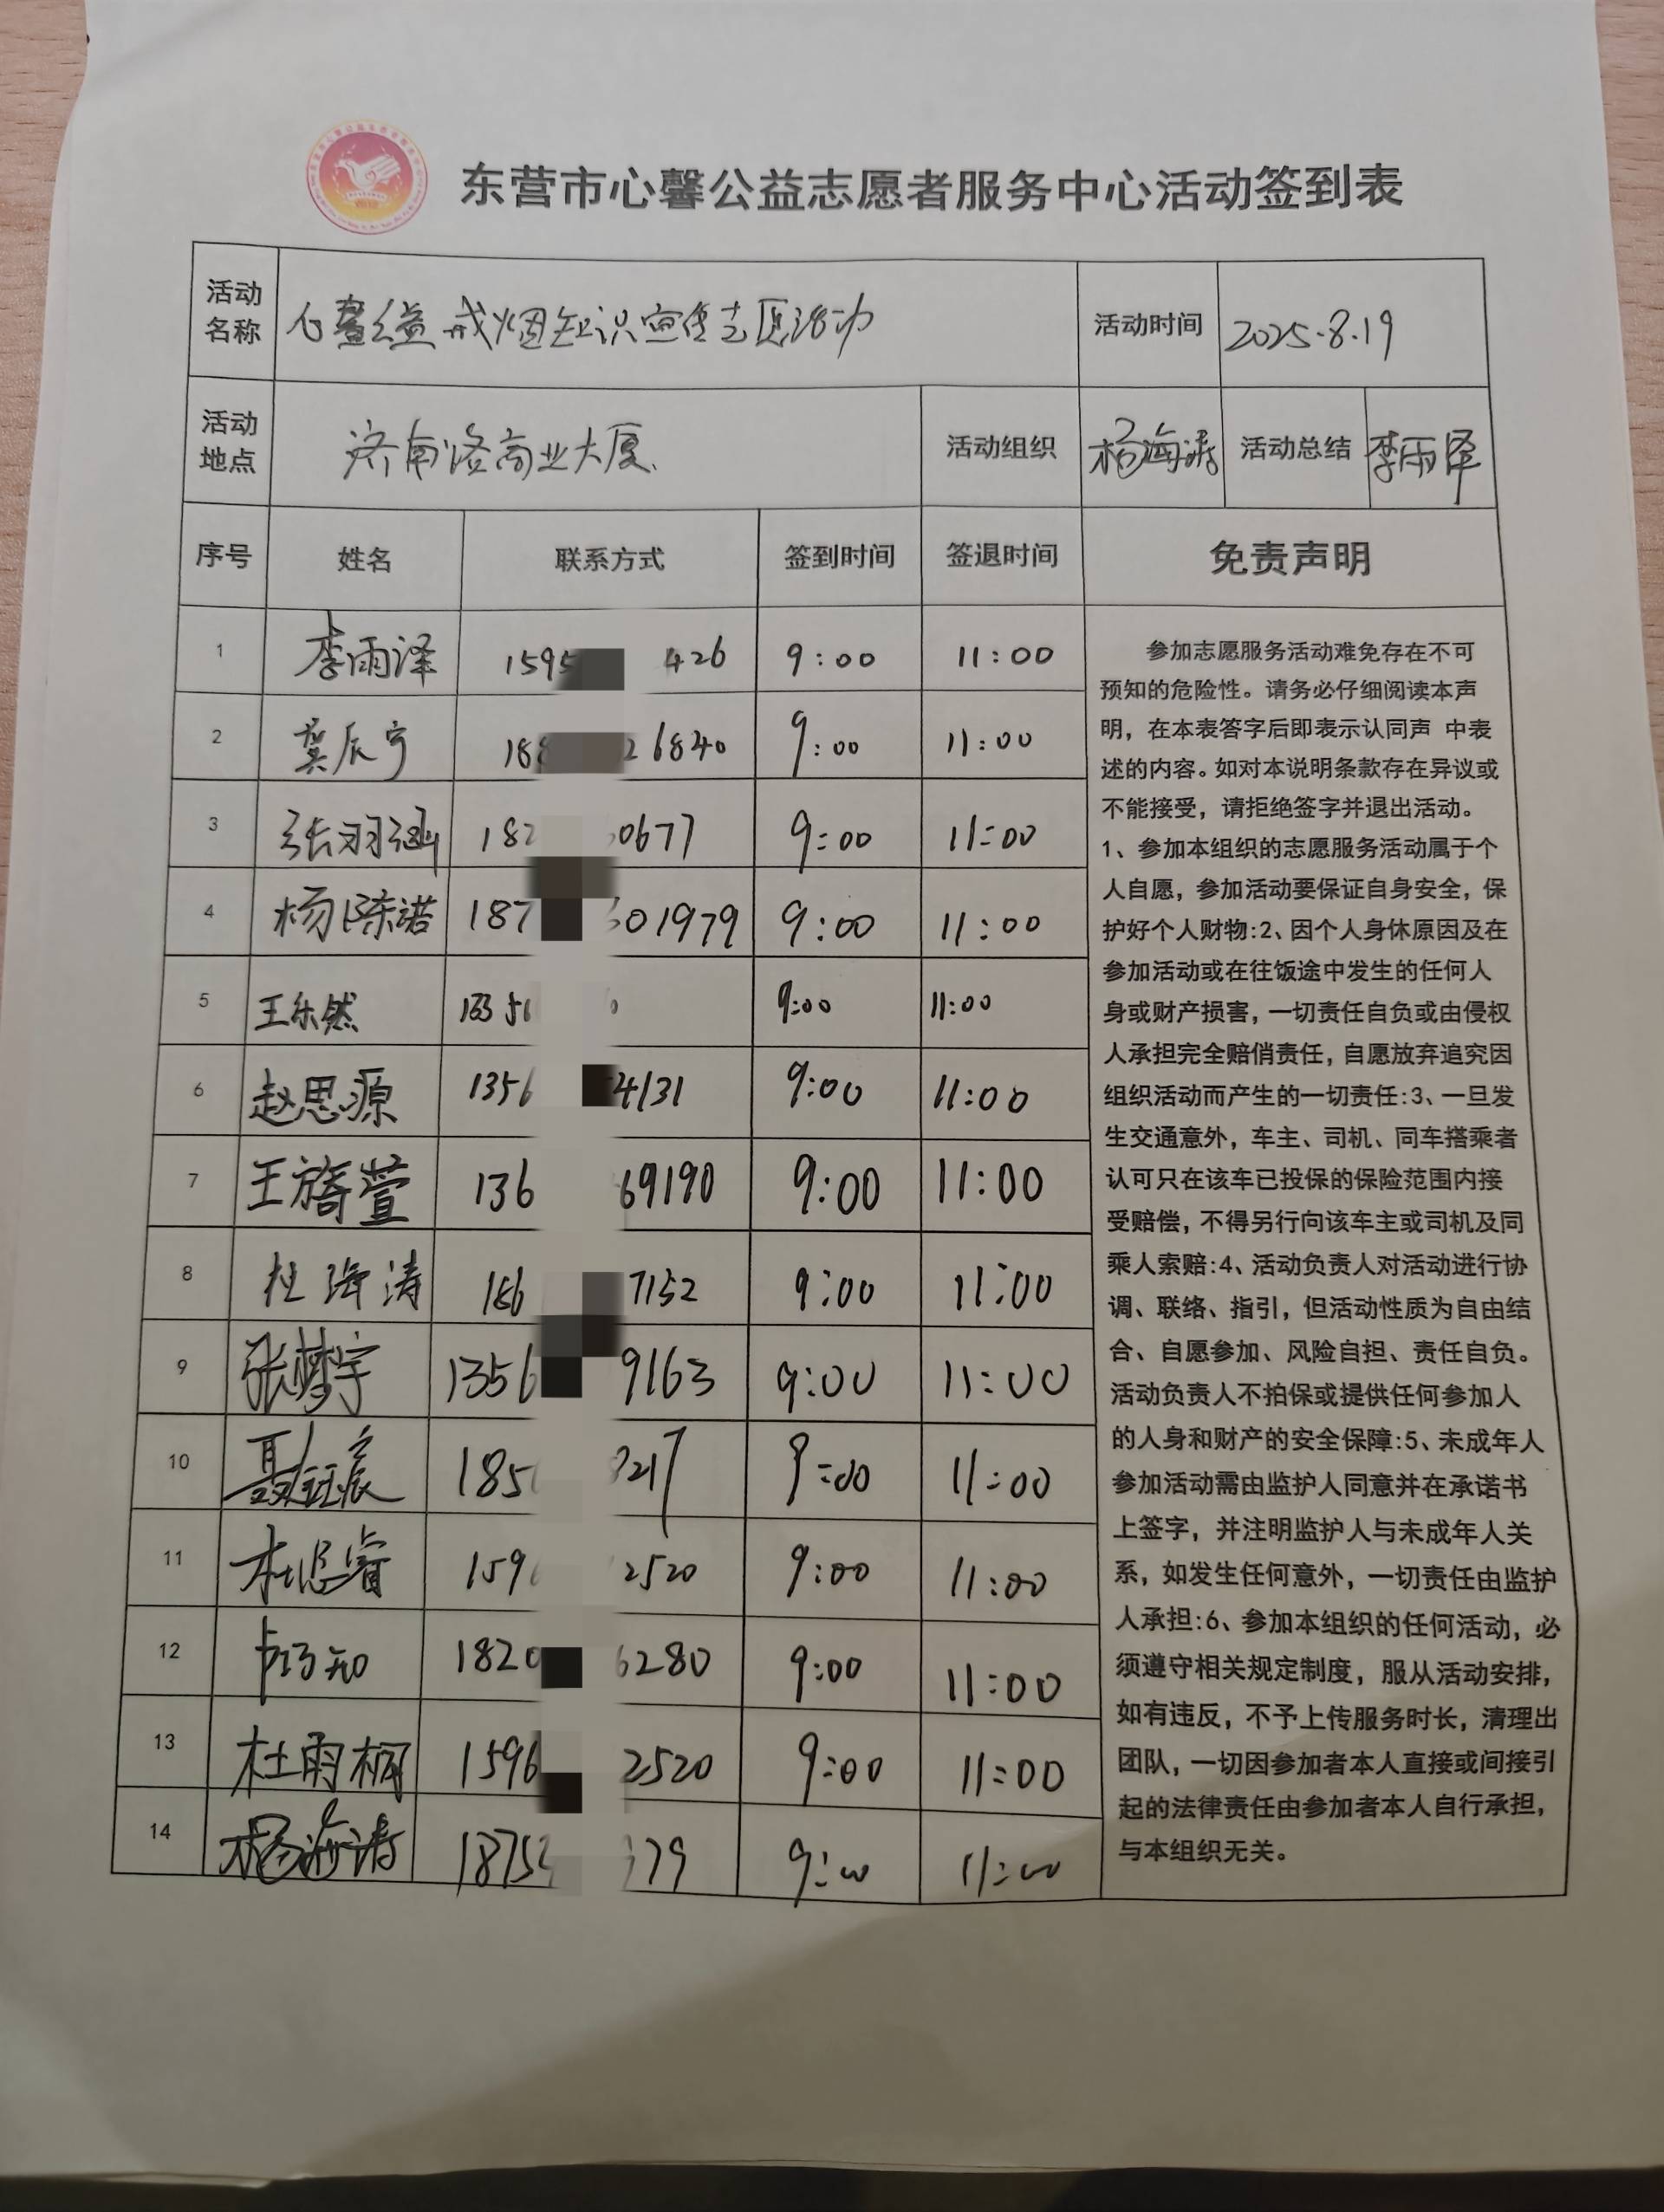 东营市心馨公益志愿者服务中心活动签到表
活动名称 心馨公益戒烟知识宣传志愿活动 活动时间 2025.8.19
活动地点 济南路商业大厦 活动组织 杨海涛 活动总结 李雨泽
序号 姓名 联系方式 签到时间 签退时间 免责声明
1 李雨泽 1595 426 9:00 11:00
2 龚辰宁 188 26840 9:00 11:00
3 张羽涵 182 0677 9:00 11:00
4 杨陈诺 187 01979 9:00 11:00
5 王乐然 9:00 11:00
6 赵思源 1356 4131 9:00 11:00
7 王旖萱 136 69190 9:00 11:00
8 杜海涛 186 7152 9:00 11:00
9 张梦宇 1356 9163 9:00 11:00
10 聂钰宸 185 217 9:00 11:00
11 杜思睿 159 2520 9:00 11:00
12 1820 6280 9:00 11:00
13 杜雨桐 1596 2520 9:00 11:00
14 杨海涛 1875 79 9:00 11:00
参加志愿服务活动难免存在不可
预知的危险性。请务必仔细阅读本声
明，在本表答字后即表示认同声 中表
述的内容。如对本说明条款存在异议或
不能接受，请拒绝签字并退出活动。
1、参加本组织的志愿服务活动属于个
人自愿，参加活动要保证自身安全，保
护好个人财物:2、因个人身休原因及在
参加活动或在往饭途中发生的任何人
身或财产损害，一切责任自负或由侵权
人承担完全赔俏责任，自愿放弃追究因
组织活动而产生的一切责任:3、一旦发
生交通意外，车主、司机、同车搭乘者
认可只在该车已投保的保险范围内接
受赔偿，不得另行向该车主或司机及同
乘人索赔:4、活动负责人对活动进行协
调、联络、指引，但活动性质为自由结
合、自愿参加、风险自担、责任自负。
活动负责人不拍保或提供任何参加人
的人身和财产的安全保障:5、未成年人
参加活动需由监护人同意并在承诺书
上签字，并注明监护人与未成年人关
系，如发生任何意外，一切责任由监护
人承担:6、参加本组织的任何活动，必
须遵守相关规定制度，服从活动安排，
如有违反，不予上传服务时长，清理出
团队，一切因参加者本人直接或间接引
起的法律责任由参加者本人自行承担，
与本组织无关。